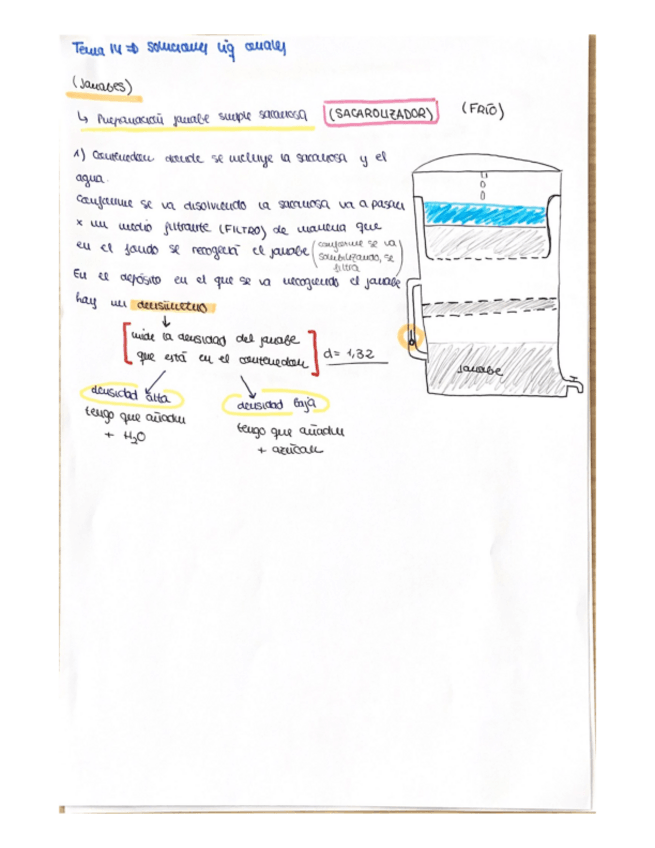 Tema 14 ⇒ soluciones líq orales
(Jarabes)
↳ Preparación jarabe simple sacarosa (SACAROLIZADOR) (FRÍO)
1) Contenedor donde se incluye la sacarosa y el
agua.
Conforme se va disolviendo la sacarosa va a pasar
x un medio filtrante (FILTRO) de manera que
en el fondo se recogerá el jarabe (conforme se va
solubilizando, se
filtra)
En el depósito en el que se va recogiendo el jarabe
hay un densímetro
[mide la densidad del jarabe
que está en el contenedor] d= 1,32
densidad alta
tengo que añadir
+ H2O
densidad baja
tengo que añadir
+ azúcar
jarabe